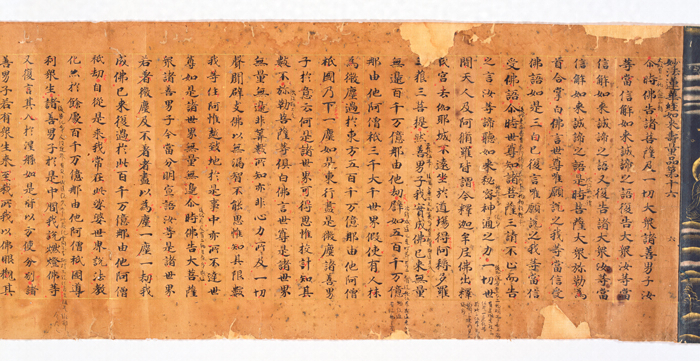 妙法蓮華經如來壽量品第十六
尒時佛告諸菩薩及一切大衆諸善男子汝
等當信解如來誠諦之語復告大衆汝等當
信解如來誠諦之語又復告諸大衆汝等當
信解如來誠諦之語是時菩薩大衆弥勒為
首合掌白佛言世尊唯願說之我等當信受
佛語如是三白已復言唯願說之我等當信
受佛語尒時世尊知諸菩薩三請不止而告
之言汝等諦聽如來秘密神通之力一切世
間天人及阿脩羅皆謂今釋迦牟尼佛出釋
氏宮去伽耶城不遠坐於道場得阿耨多羅
三藐三菩提然善男子我實成佛已來無量
無邊百千万億那由他劫譬如五百千万億
那由他阿僧祇三千大千世界假使有人抹
為微塵過於東方五百千万億那由他阿僧
祇國乃下一塵如是東行盡是微塵諸善男
子於意云何是諸世界可得思惟校計知其
數不弥勒菩薩等俱白佛言世尊是諸世界
無量無邊非筭數所知亦非心力所及一切
聲聞辟支佛以無漏智不能思惟知其限數
我等住阿惟越致地於是事中亦所不達世
尊如是諸世界無量無邊尒時佛告大菩薩
衆諸善男子今當分明宣語汝等是諸世界
若著微塵及不著者盡以為塵一塵一劫我
成佛已來復過於此百千万億那由他阿僧
祇劫自從是來我常在此娑婆世界說法教
化亦於餘處百千万億那由他阿僧祇國導
利衆生諸善男子於是中間我說燃燈佛等
又復言其入於涅槃如是皆以方便分別諸
善男子若有衆生來至我所我以佛眼觀其